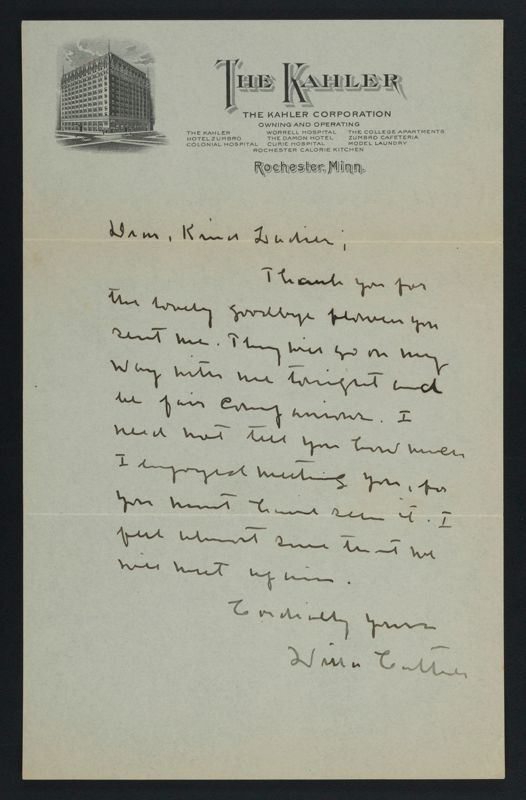 THE KAHLER
THE KAHLER CORPORATION
OWNING AND OPERATING
THE KAHLER WORRELL HOSPITAL THE COLLEGE APARTMENTS
HOTEL ZUMBRO THE DAMON HOTEL ZUMBRO CAFETERIA
COLONIAL HOSPITAL CURIE HOSPITAL MODEL LAUNDRY
ROCHESTER CALORIE KITCHEN
Rochester, Minn.
Dear, Kind Ladies;
Thank you for
the lovely goodbye flowers you
sent me. They will go on my
way with me tonight and
be fair companions. I
need not tell you how much
I enjoyed meeting you, for
you must have seen it. I
feel almost sure that we
will meet again.
Cordially yours
Willa Cather